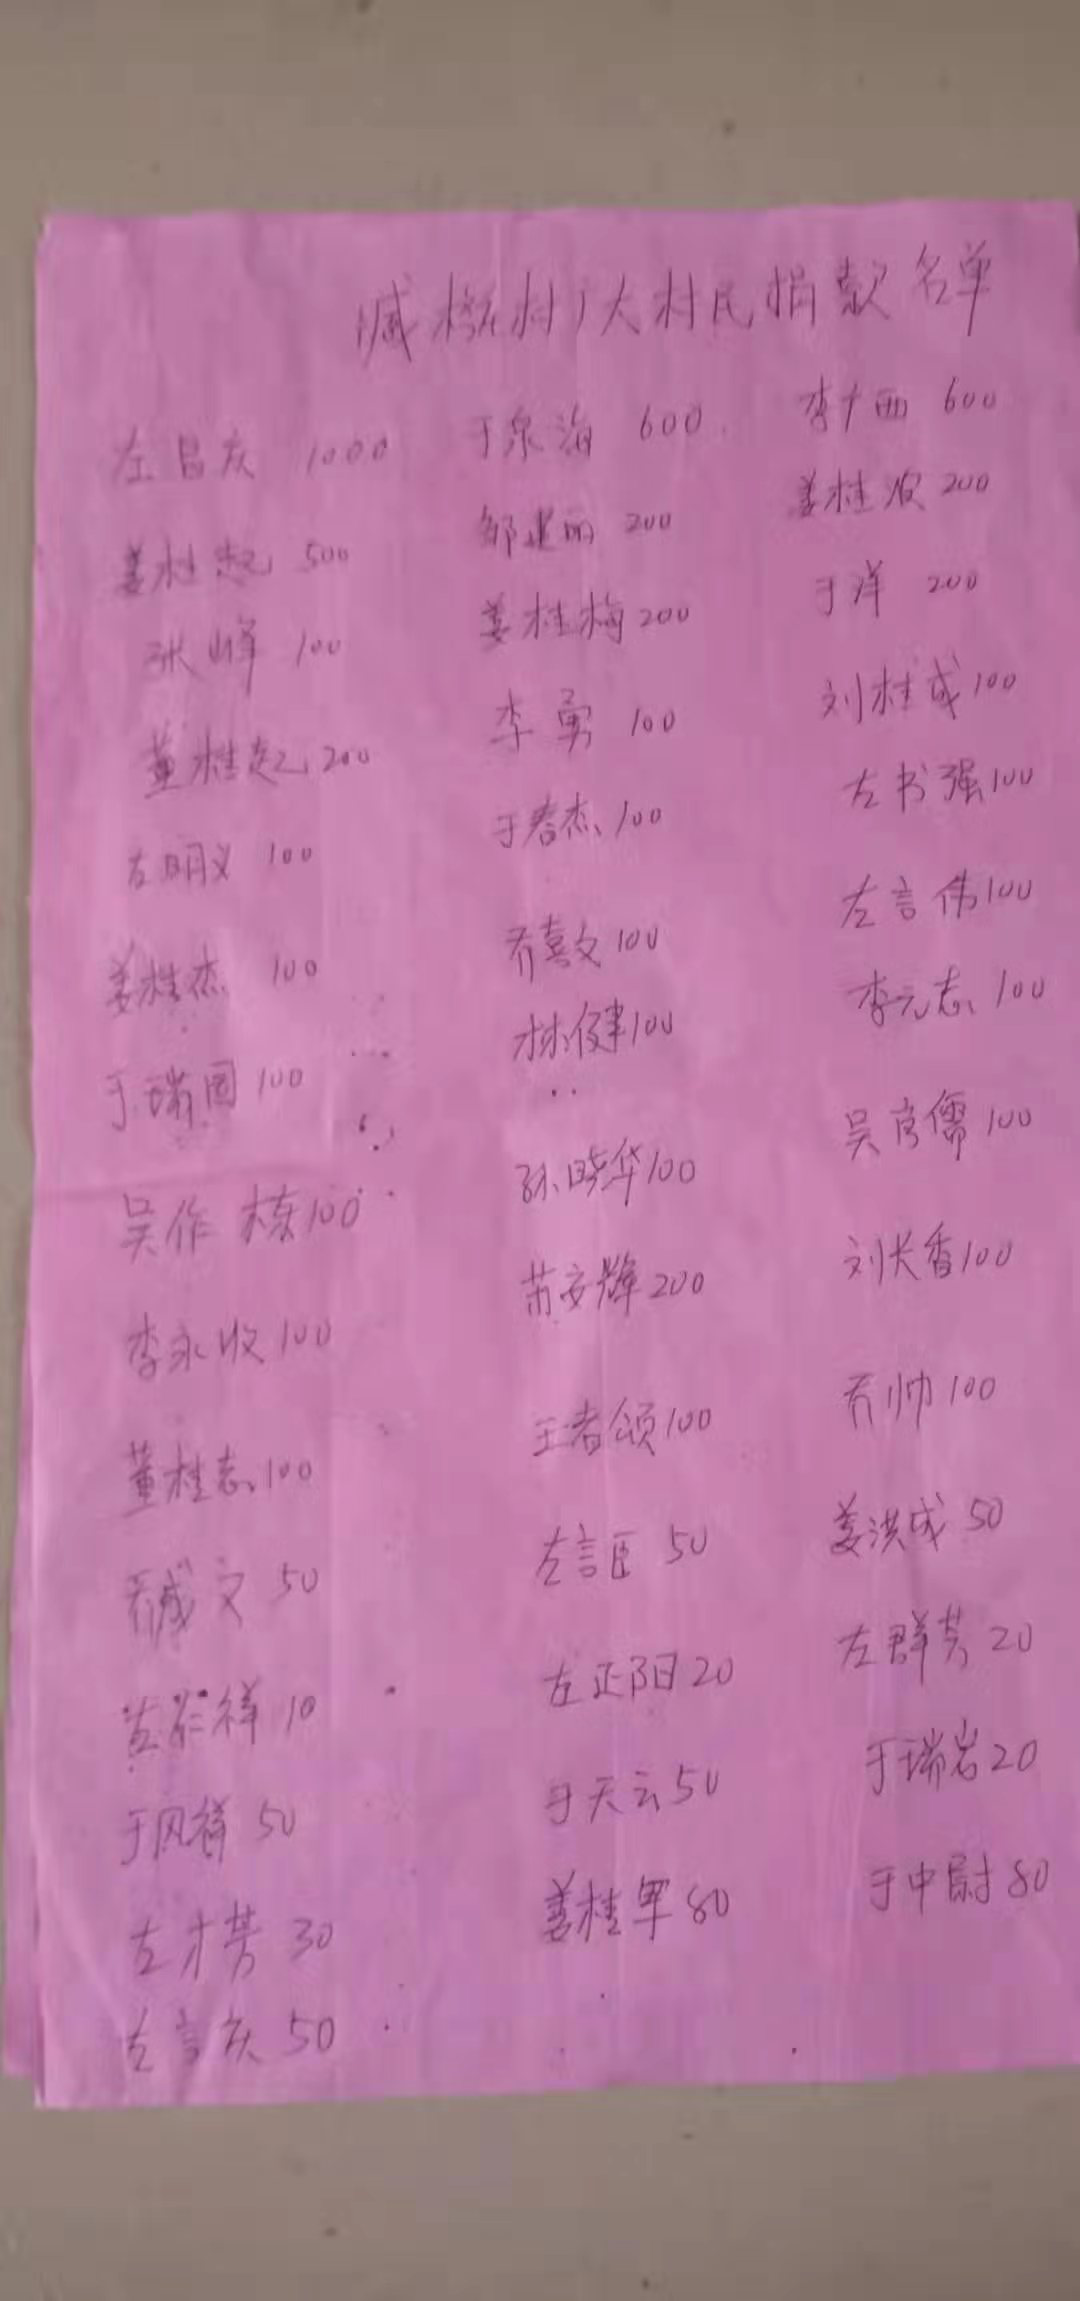 臧格村广大村民捐款名单
左昌庆 1000 于泉海 600 李广西 600
姜桂起 500 邹建丽 200 姜桂波 200
张峰 100 姜桂梅 200 于洋 200
董桂起 200 李勇 100 刘桂成 100
左明义 100 于春杰 100 左书强 100
姜桂杰 100 乔喜文 100 左言伟 100
于瑞国 100 林健 100 李元志 100
吴作栋 100 孙晓华 100 吴官儒 100
李永收 100 苏安辉 200 刘长香 100
董桂志 100 王者颂 100 乔帅 100
乔成文 50 左言臣 50 姜洪成 50
左 祥 10 左正阳 20 左群芳 20
于风祥 50 于天云 50 于瑞岩 20
左才芳 30 姜桂军 80 于中尉 80
左言庆 50